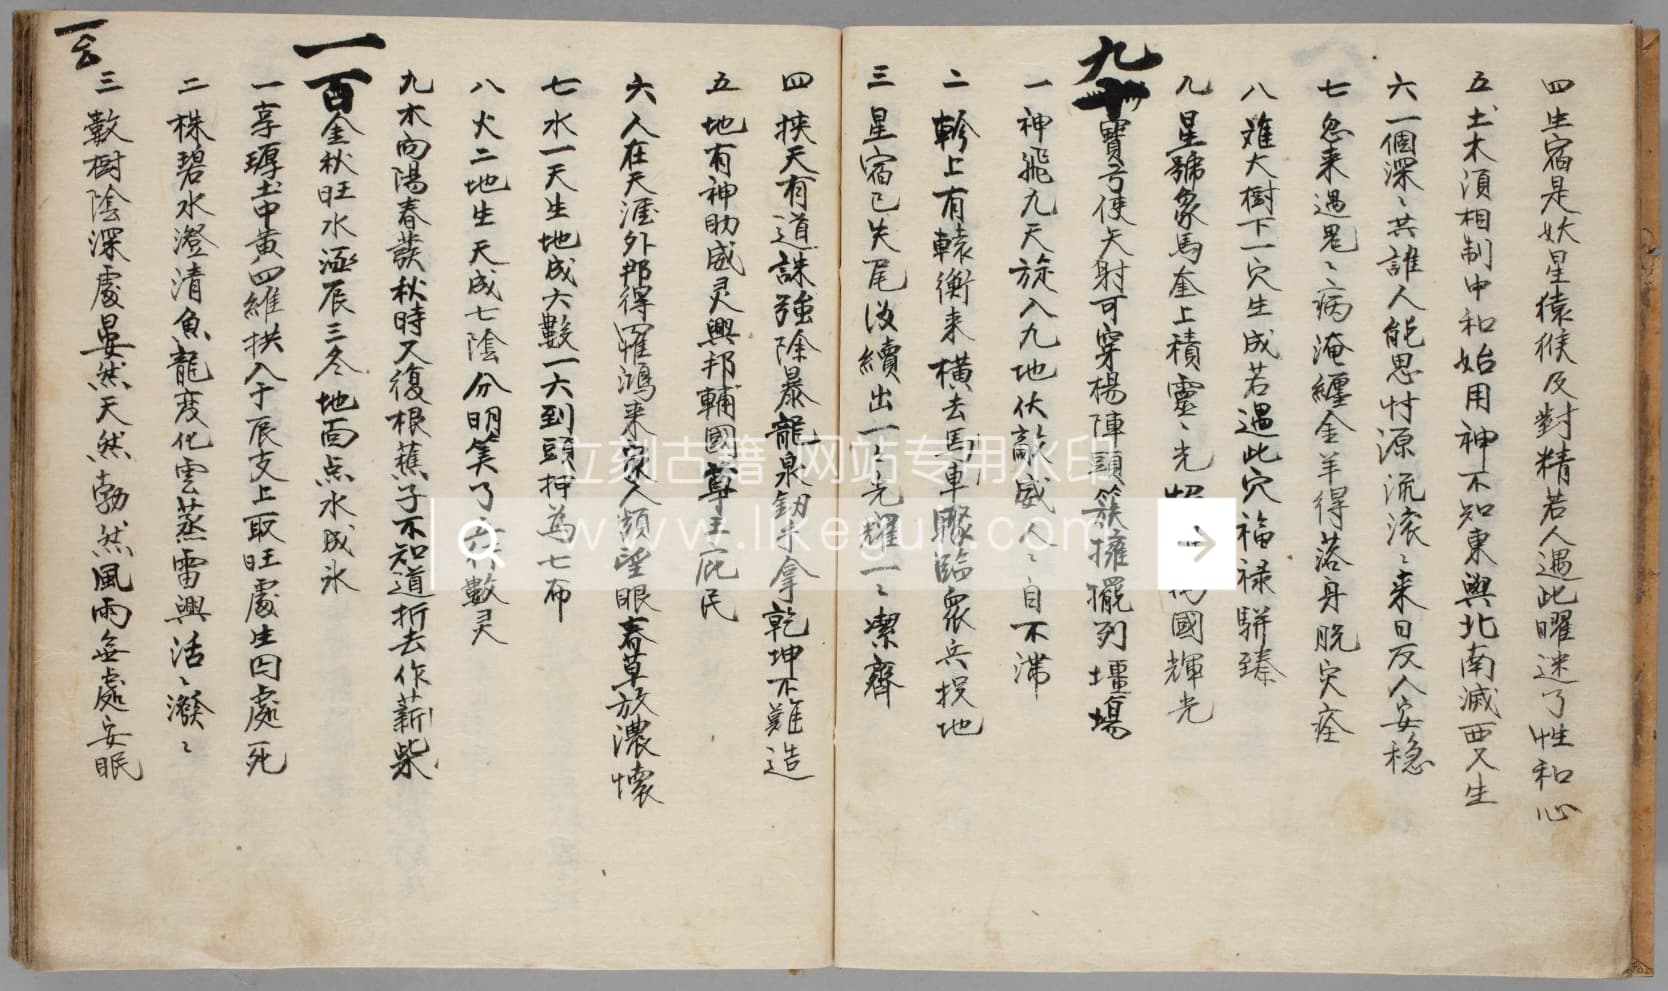 四生宿是妖星猿猴及對精若人遇此曜迷了性和心
五土木須相制中和始用神不知東興北南滅西又生
六一個深〻共誰人能思忖源流滚〻来日反人安稳
七忽来遇鬼〻病淹纏金羊得落身脱灾痊
八难大樹下一穴生成若遇此穴福禄駢臻
九星號象馬奎上積靈〻光國輝光
九十寶弓使矢射可穿楊陣頭簇擁擺列壃場
一神飛九天旋入九地伏敵威人〻自不滞
二軫上有轅衡来橫去馬車驟臨衆兵投地
三星宿已失尾後續出一〻光耀一〻潔齊
四挟天有道誅強除暴龍泉釼手拿乾坤不難造
五地有神助威灵興邦輔國尊主庇民
六人在天涯外邦得羅鴻来家人頻望眼春草放濃懷
七水一天生地成六數一六到頭押為七布
八火二地生天成七陰分明笑了數灵
九木向陽春發秋時又復根蕉子不知道折去作薪柴
一百金秋旺水涵辰三冬地面点水成氷
一享琤土中黄四維拱入于辰支上取旺處生囚處死
二株碧水澄清魚龍变化雲蒸雷興活〻潑〻
三數樹陰深處晏然天然勃然風雨無處安眠
立刻古籍 网站专用水印
www.likeguji.com